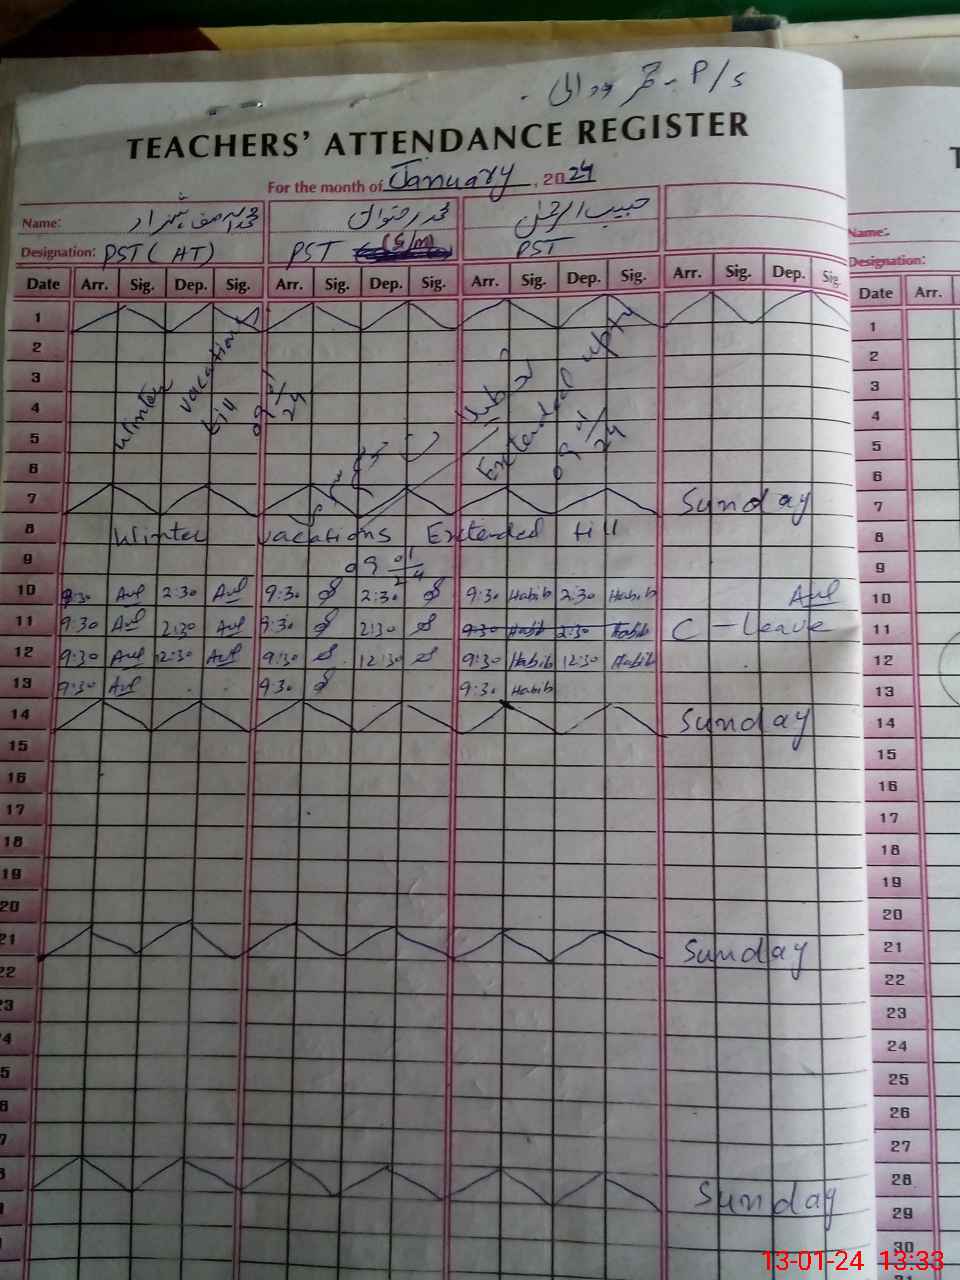 P/S
TEACHERS' ATTENDANCE REGISTER
For the month of January, 2024
Name: محمد آصف شہزاد محمد رضوان حبیب الرحمٰن
Designation: PST (HT) PST PST
Date Arr. Sig. Dep. Sig. Arr. Sig. Dep. Sig. Arr. Sig. Dep. Sig. Arr. Sig. Dep. Sig.
1
2
3
4
5
6
Winter vacations till 09 01/24
Extended upto 09 01/24
7 Sunday
8 Winter vacations Extended till
9 09 01/24
10 9:30 2:30 9:30 2:30 9:30 Habib 2:30 Habib
11 9:30 2:30 9:30 2:30 9:30 Habib 2:30 Habib C-Leave
12 9:30 12:30 9:30 12:30 9:30 Habib 12:30 Habib
13 9:30 9:30 9:30 Habib
14 Sunday
15
16
17
18
19
20
21 Sunday
22
23
4
5
6
7
8 Sunday
Name:
Designation:
Date Arr.
1
2
3
4
5
6
7
8
9
10
11
12
13
14
15
16
17
18
19
20
21
22
23
24
25
26
27
28
29
30
13-01-24 13:33